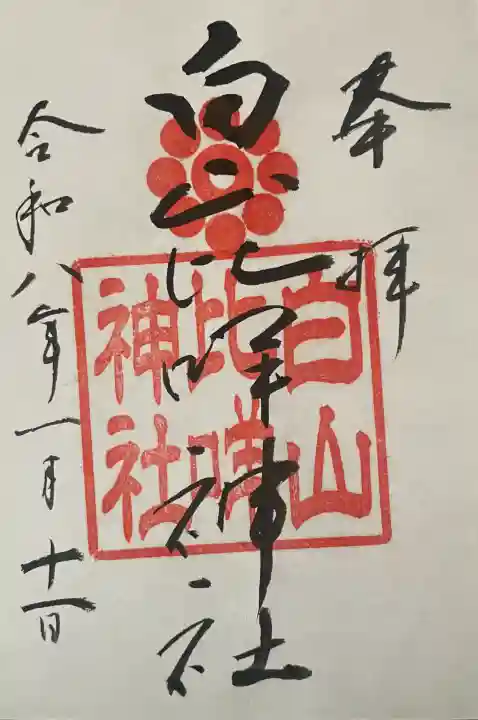 奉拝
白山比咩神社
白山
比咩
神社
令和八年一月十一日